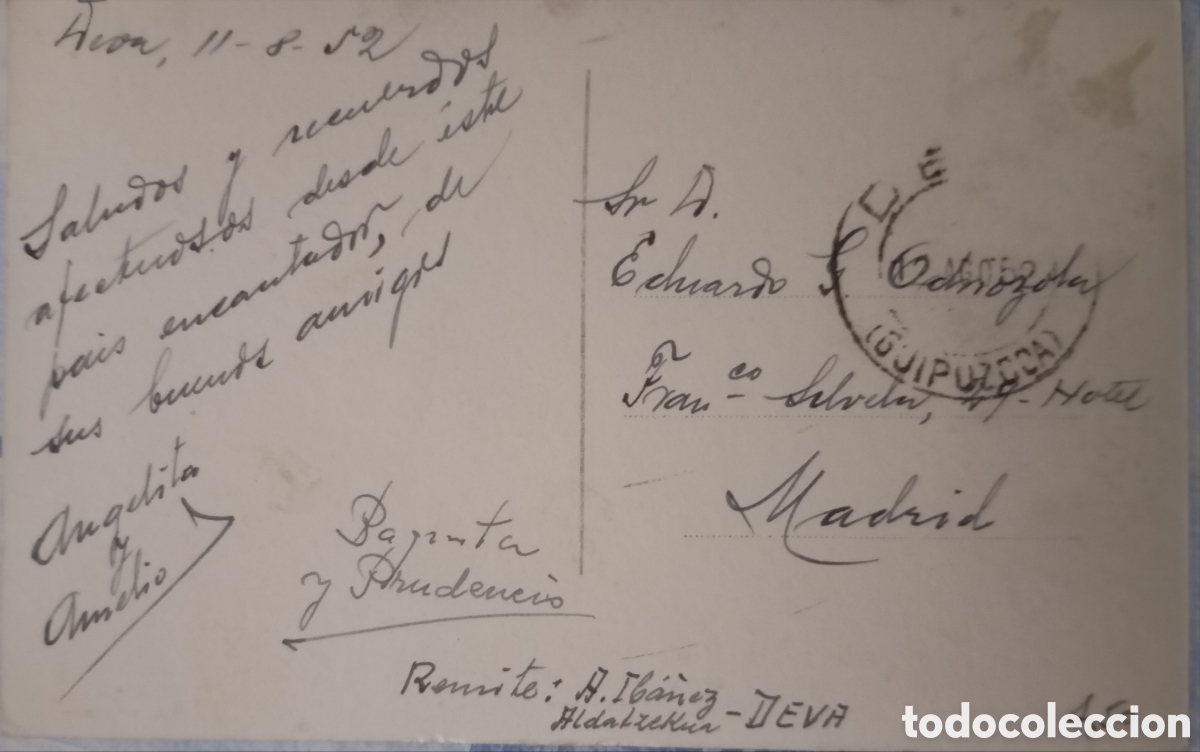 Deva, 11-8-52
Saludos y recuerdos
afectuosos desde éste
pais encantador, de
sus buenos amigos
Angelita
y
Aurelio
Paquita
y Prudencio
Sr D.
Eduardo G. Odriozola
Fran.co Silvela, 49-Hotel
Madrid
Remite: A. Ibáñez
DEVA
DE
12 AGO 52
(GUIPUZCOA)
todocoleccion